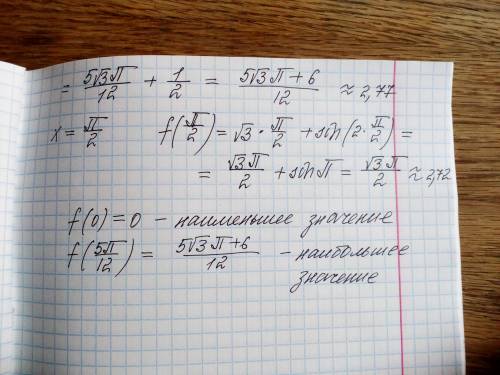 = 5√3π/12 + 1/2 = (5√3π+6)/12 ≈ 2,77
x = π/2 f(π/2) = √3 · π/2 + sin(2 · π/2) =
= √3π/2 + sin π = √3π/2 ≈ 2,72
f(0) = 0 – наименьшее значение
f(5π/12) = (5√3π+6)/12 – наибольшее
значение